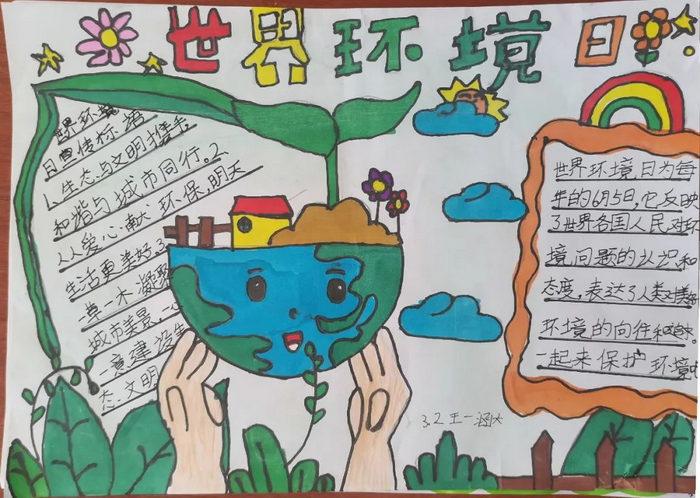 世界环境日
世界环境
日宣传标语
1、生态与文明才携手,
和谐与城市同行。2、
人人爱心献环保,明天
生活更美好3
草一木凝聚
城市美景,一
一意建设生
态文明
世界环境日为每
年的6月5日,它反映
了世界各国人民对环
境问题的认识和
态度,表达了人类对美
环境的向往和
一起来保护环境
3.2王一涵